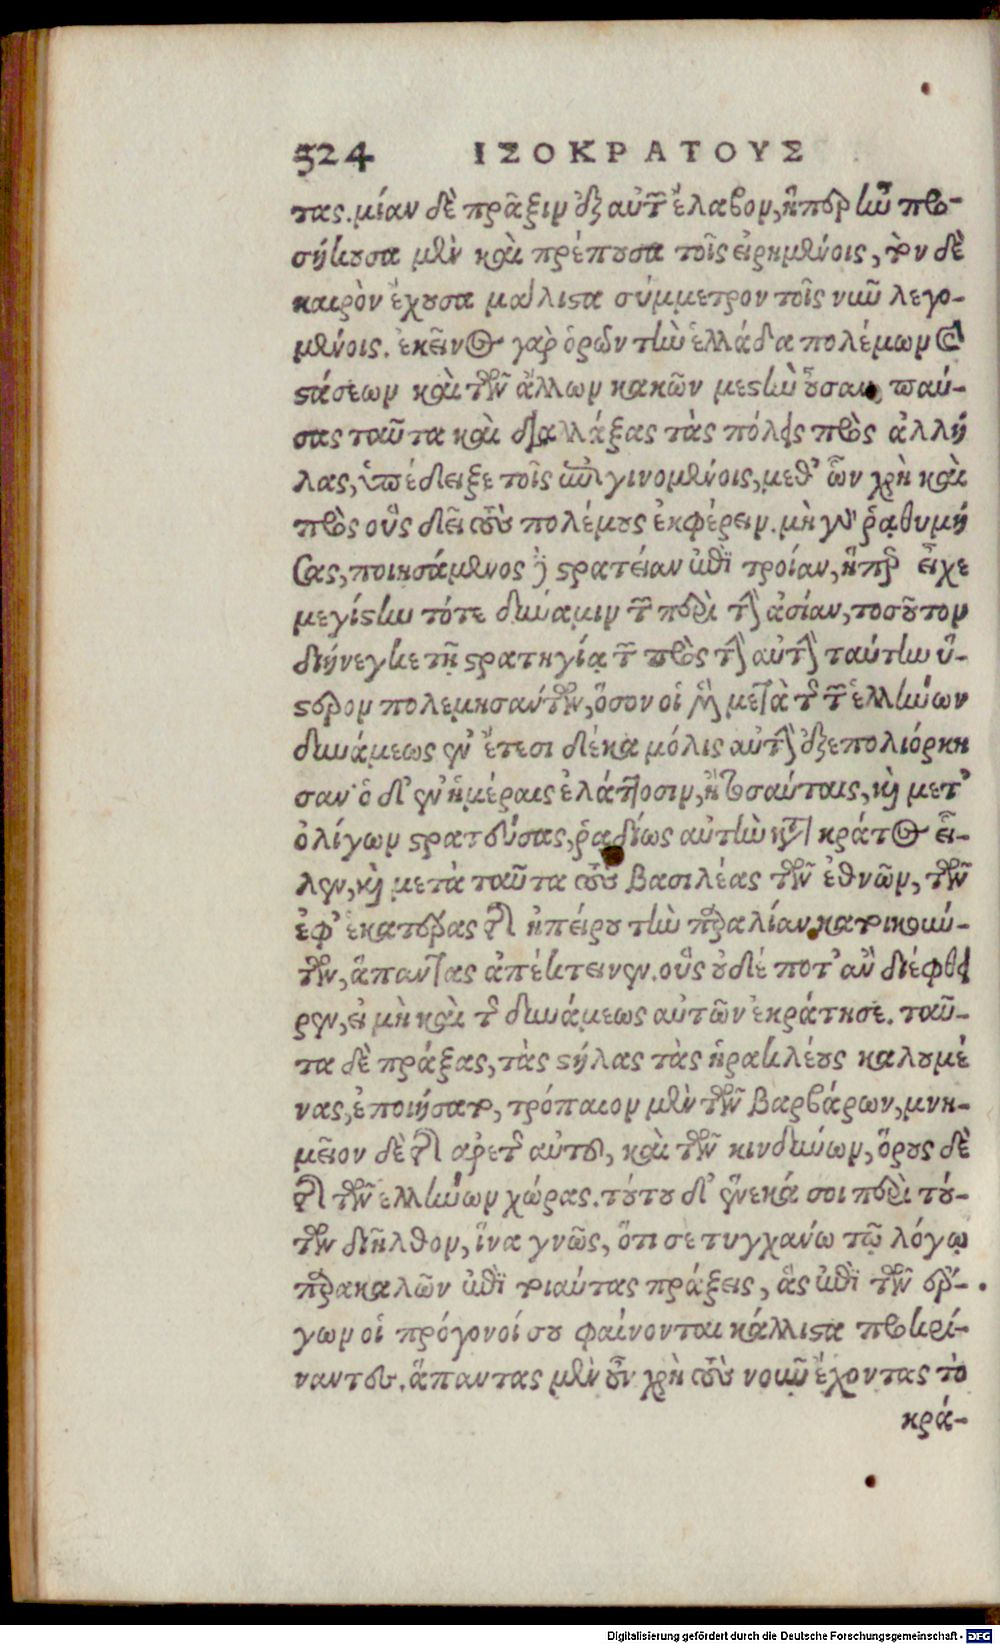 324 ΙΣΟΚΡΑΤΟΥΣ
τας. μίαν δὲ πρᾶξιν ἐξ αὐτῶν ἔλαβον, ἥπερ ἦν προ-
σήκουσα μὲν καὶ πρέπουσα τοῖς εἰρημένοις, τὸν δὲ
καιρὸν ἔχουσα μάλιστα σύμμετρον τοῖς νῦν λεγο-
μένοις. ἐκεῖνος γὰρ ὁρῶν τὴν ἑλλάδα πολέμων καὶ
στάσεων καὶ τῶν ἄλλων κακῶν μεστὴν οὖσαν, παύ-
σας ταῦτα καὶ διαλλάξας τὰς πόλεις πρὸς ἀλλή
λας, ὑπέδειξε τοῖς ἐπιγινομένοις, μεθ' ὧν χρὴ καὶ
πρὸς οὓς δεῖ τοὺς πολέμους ἐκφέρειν. μὴ γὰρ ῥᾳθυμή
σας, ποιησάμενος δὲ στρατείαν ἐπὶ τροίαν, ἥπερ εἶχε
μεγίστην τότε δύναμιν τῶν περὶ τὴν ἀσίαν, τοσοῦτον
διήνεγκε τῇ στρατηγίᾳ τῶν πρὸς τὴν αὐτὴν ταύτην ὕ-
στερον πολεμησάντων, ὅσον οἱ μὲν μετὰ τῆς τῶν ἑλλήνων
δυνάμεως ἐν ἔτεσι δέκα μόλις αὐτὴν ἐξεπολιόρκη
σαν· ὁ δ' ἐν ἡμέραις ἐλάττοσιν, ἢ τοσαύταις, καὶ μετ'
ὀλίγων στρατεύσας, ῥᾳδίως αὐτὴν κατὰ κράτος εἷ-
λεν, καὶ μετὰ ταῦτα τοὺς βασιλέας τῶν ἐθνῶν, τῶν
ἐφ' ἑκατέρας τῆς ἠπείρου τὴν παραλίαν κατοικούν-
των, ἅπαντας ἀπέκτεινεν. οὓς οὐδέ ποτ' ἂν διέφθει
ρεν, εἰ μὴ καὶ τῆς δυνάμεως αὐτῶν ἐκράτησε. ταῦ-
τα δὲ πράξας, τὰς στήλας τὰς ἡρακλέους καλουμέ
νας, ἐποιήσατο, τρόπαιον μὲν τῶν βαρβάρων, μνη-
μεῖον δὲ τῆς ἀρετῆς αὐτοῦ, καὶ τῶν κινδύνων, ὅρους δὲ
τῆς τῶν ἑλλήνων χώρας. τούτου δ' ἕνεκά σοι περὶ τού-
των διῆλθον, ἵνα γνῷς, ὅτι σε τυγχάνω τῷ λόγῳ
παρακαλῶν ἐπὶ τοιαύτας πράξεις, ἃς ἐπὶ τῶν ἔρ-
γων οἱ πρόγονοί σου φαίνονται κάλλιστα προκρί-
ναντες. ἅπαντας μὲν οὖν χρὴ τοὺς νοῦν ἔχοντας τὸ
κρά-
Digitalisierung gefördert durch die Deutsche Forschungsgemeinschaft - DFG